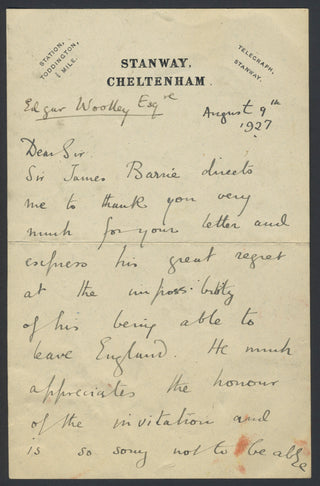 STATION,
TODDINGTON,
1 MILE.
STANWAY,
CHELTENHAM.
TELEGRAPH,
STANWAY.
Edgar Woolley Esqre
August 9th
1927
Dear Sir.
Sir James Barrie directs
me to thank you very
much for your letter and
express his great regret
at the impossibility
of his being able to
leave England. He much
appreciates the honour
of the invitation and
is so sorry not to be able